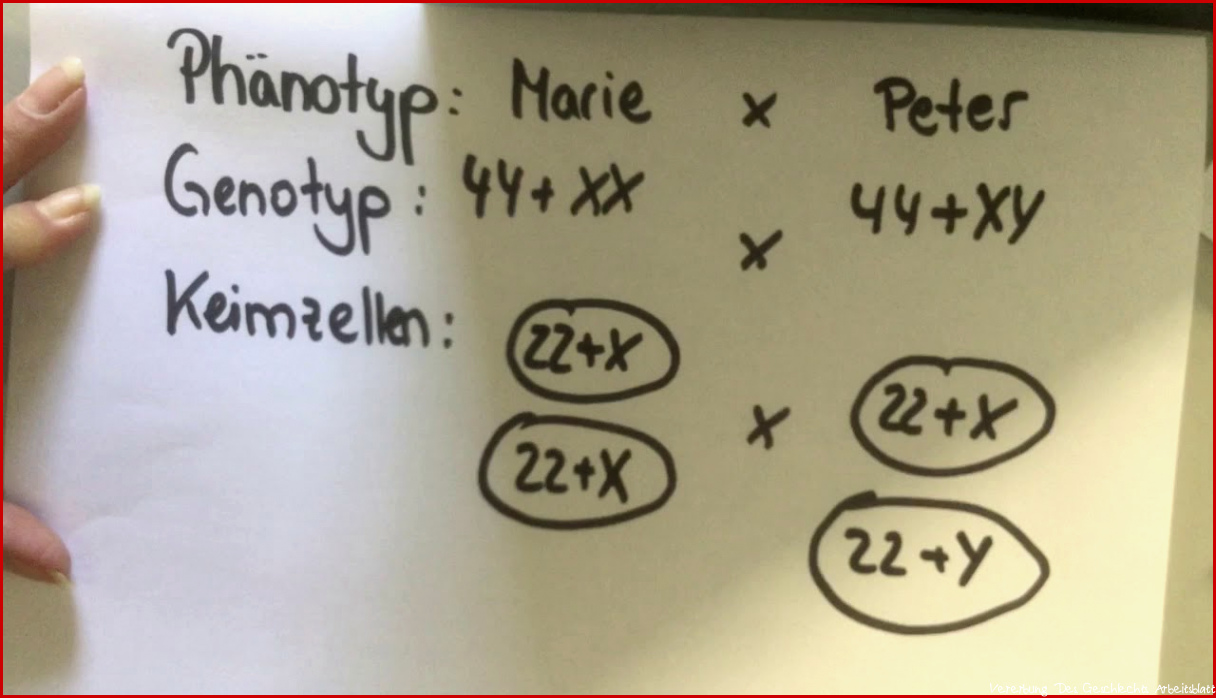 Phänotyp: Marie x Peter
Genotyp: 44+XX x 44+XY
Keimzellen:
22+X
22+X x 22+X
22+Y
Arbeitsblatt